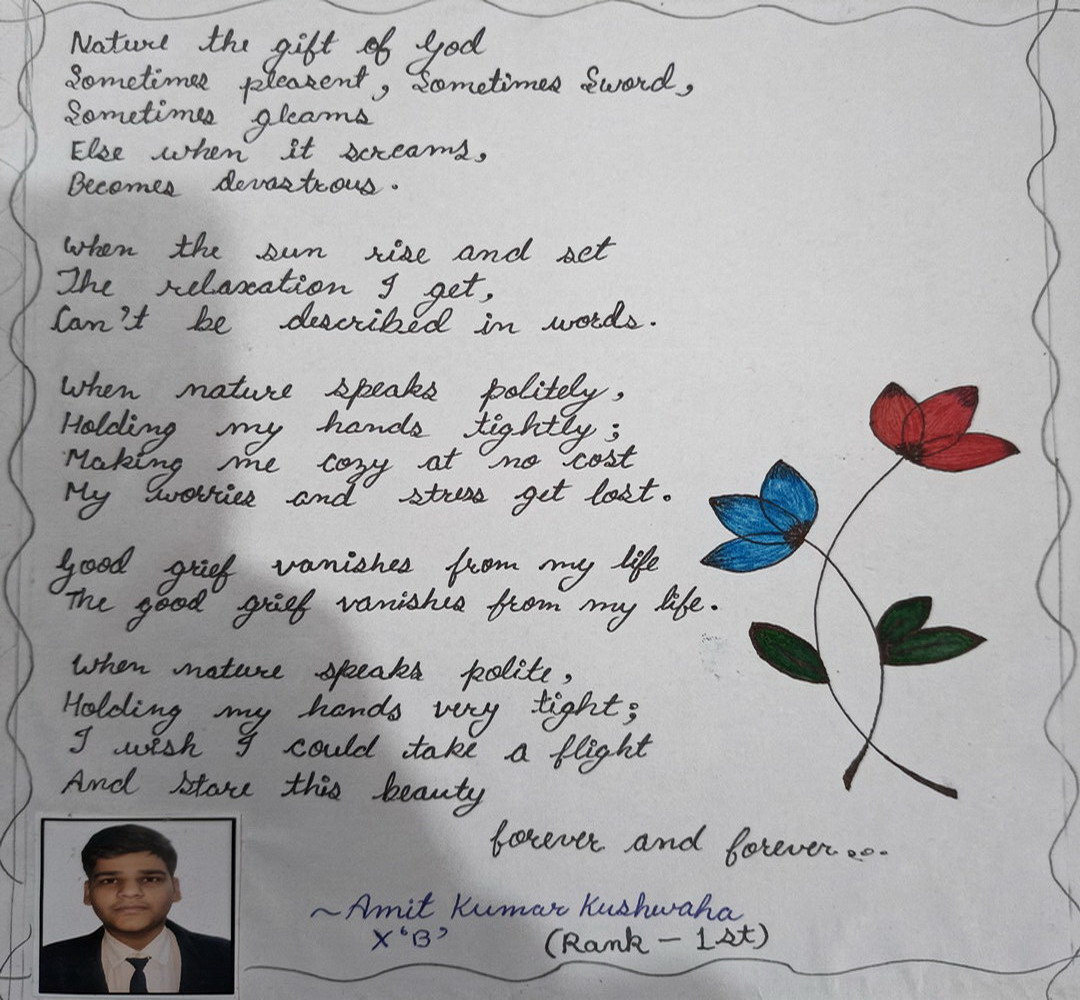 Nature the gift of God
Sometimes pleasent, Sometimes Sword,
Sometimes gleams
Else when it screams,
Becomes devastrous.
When the sun rise and set
The relaxation I get,
Can't be described in words.
When nature speaks politely,
Holding my hands tightly;
Making me cozy at no cost
My worries and stress get lost.
Good grief vanishes from my life
The good grief vanishes from my life.
When nature speaks polite,
Holding my hands very tight;
I wish I could take a flight
And stare this beauty
forever and forever....
~Amit Kumar Kushwaha
X 'B' (Rank - 1st)